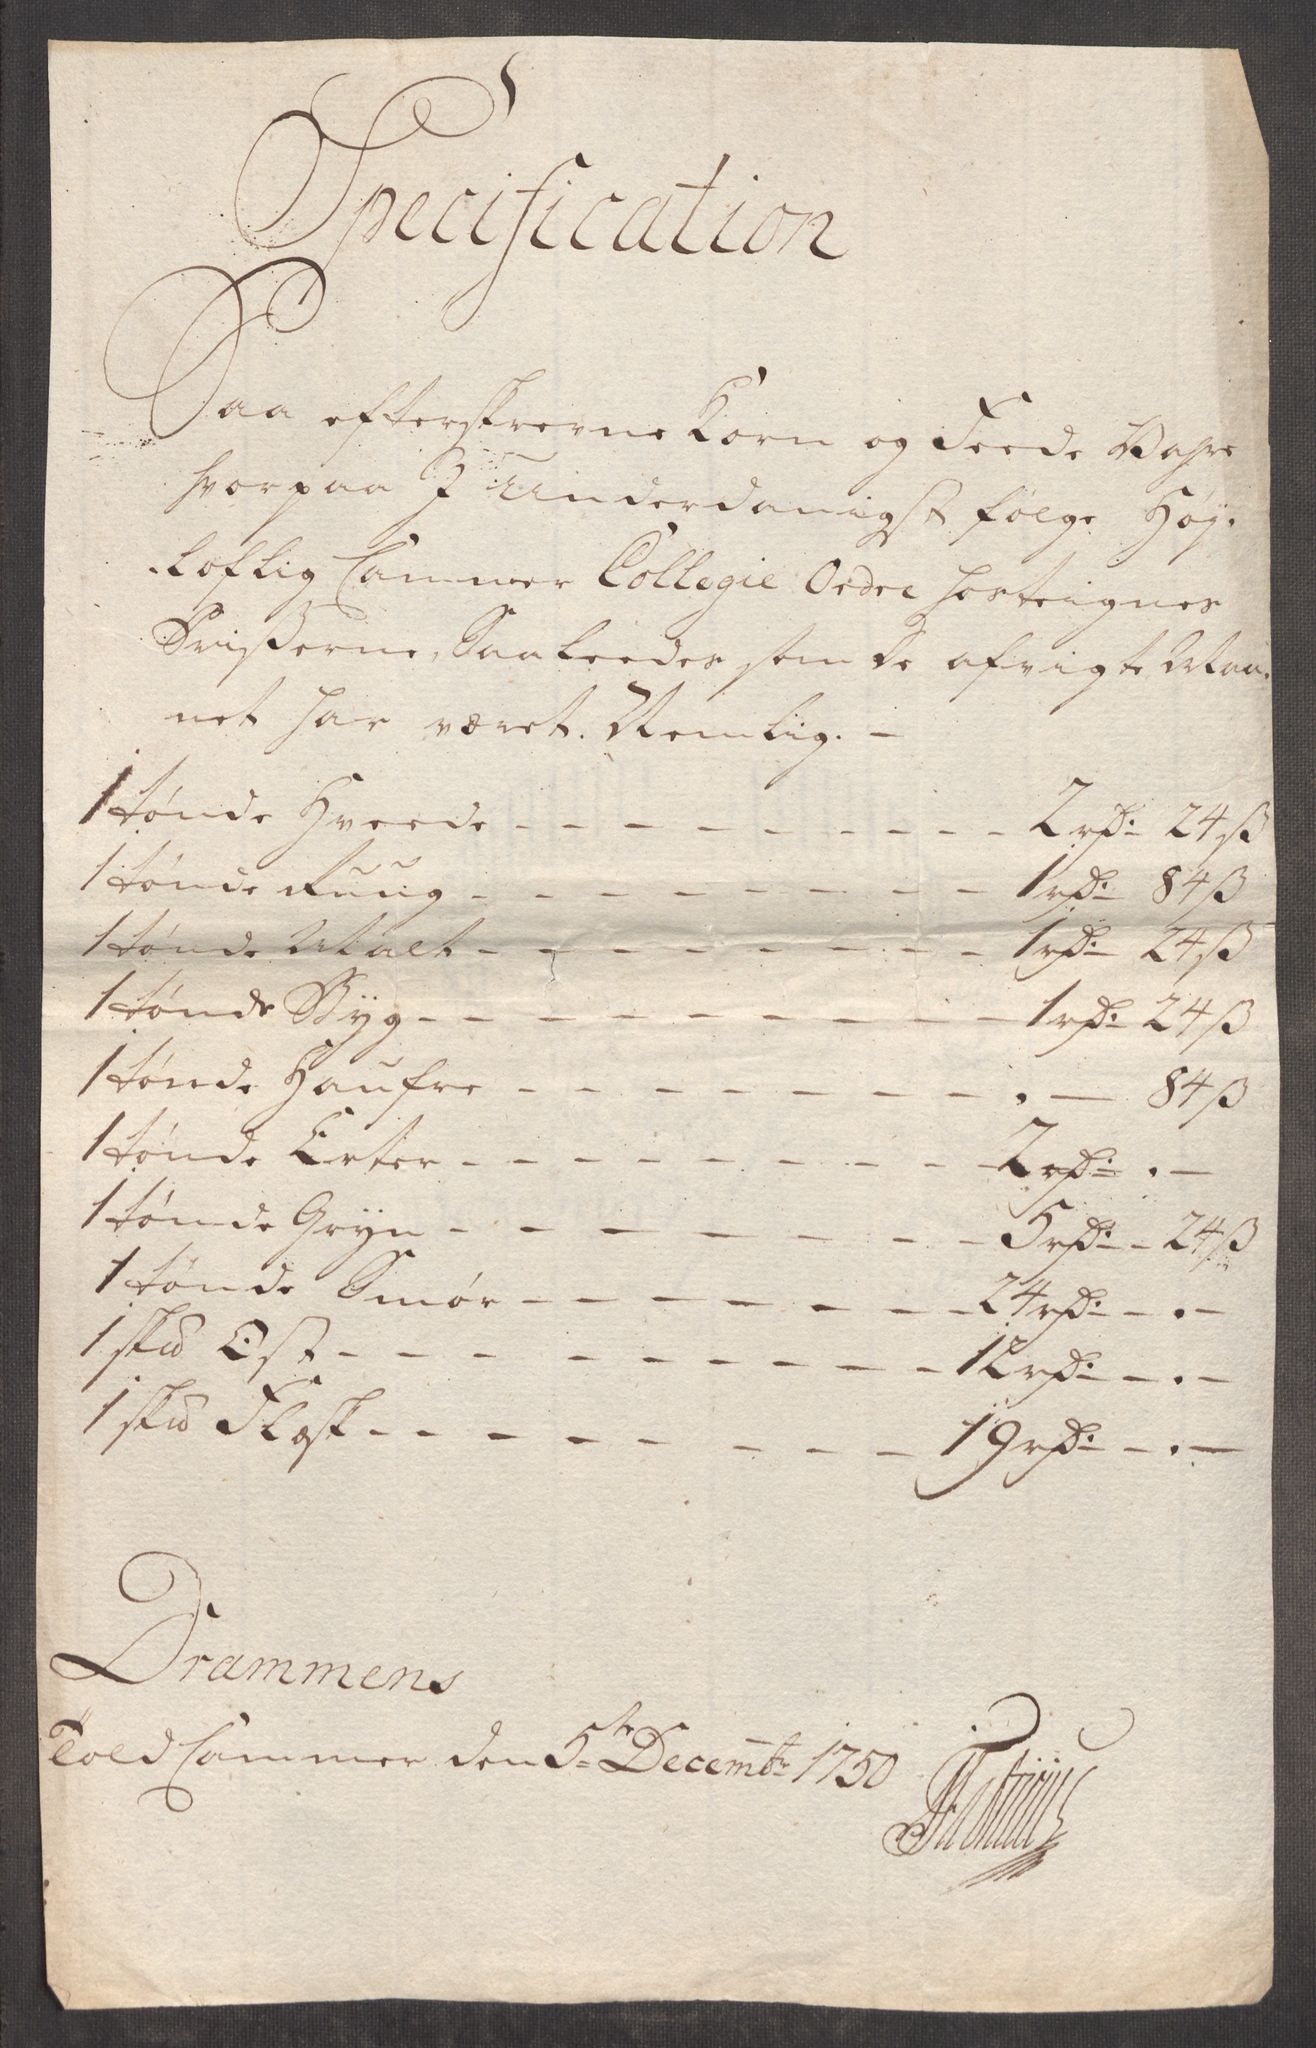 Specification
Paa efterskrevne Korn og Feede Vahre
hvorpaa J Underdanigst følge Høy-
Loflig Cammer Collegie Ordre hosteignes
Prißerne, Saaleedes som de afvigte Maa-
net har været. Nemlig. -
1 tønde Hveede - - - - - - - - - - 2 rd: 24 ß
1 tønde Ruug - - - - - - - - - 1 rd: 84 ß
1 tønde Malt - - - - - - - - - 1 rd: 24 ß
1 tønde Byg - - - - - - - - - - 1 rd: 24 ß
1 tønde Haufre - - - - - - - - - . — 84 ß
1 tønde Erter - - - - - - - - - 2 rd: . -
1 tønde Gryn - - - - - - - - 5 rd: - 24 ß
1 tønde Smør - - - - - - - - 24 rd: - . -
1 skd Ost - - - - - - - - - 12 rd: - . -
1 skd Flesk - - - - - - - - 19 rd: - . -
Drammens
Told Cammer den 5te Decembr 1750